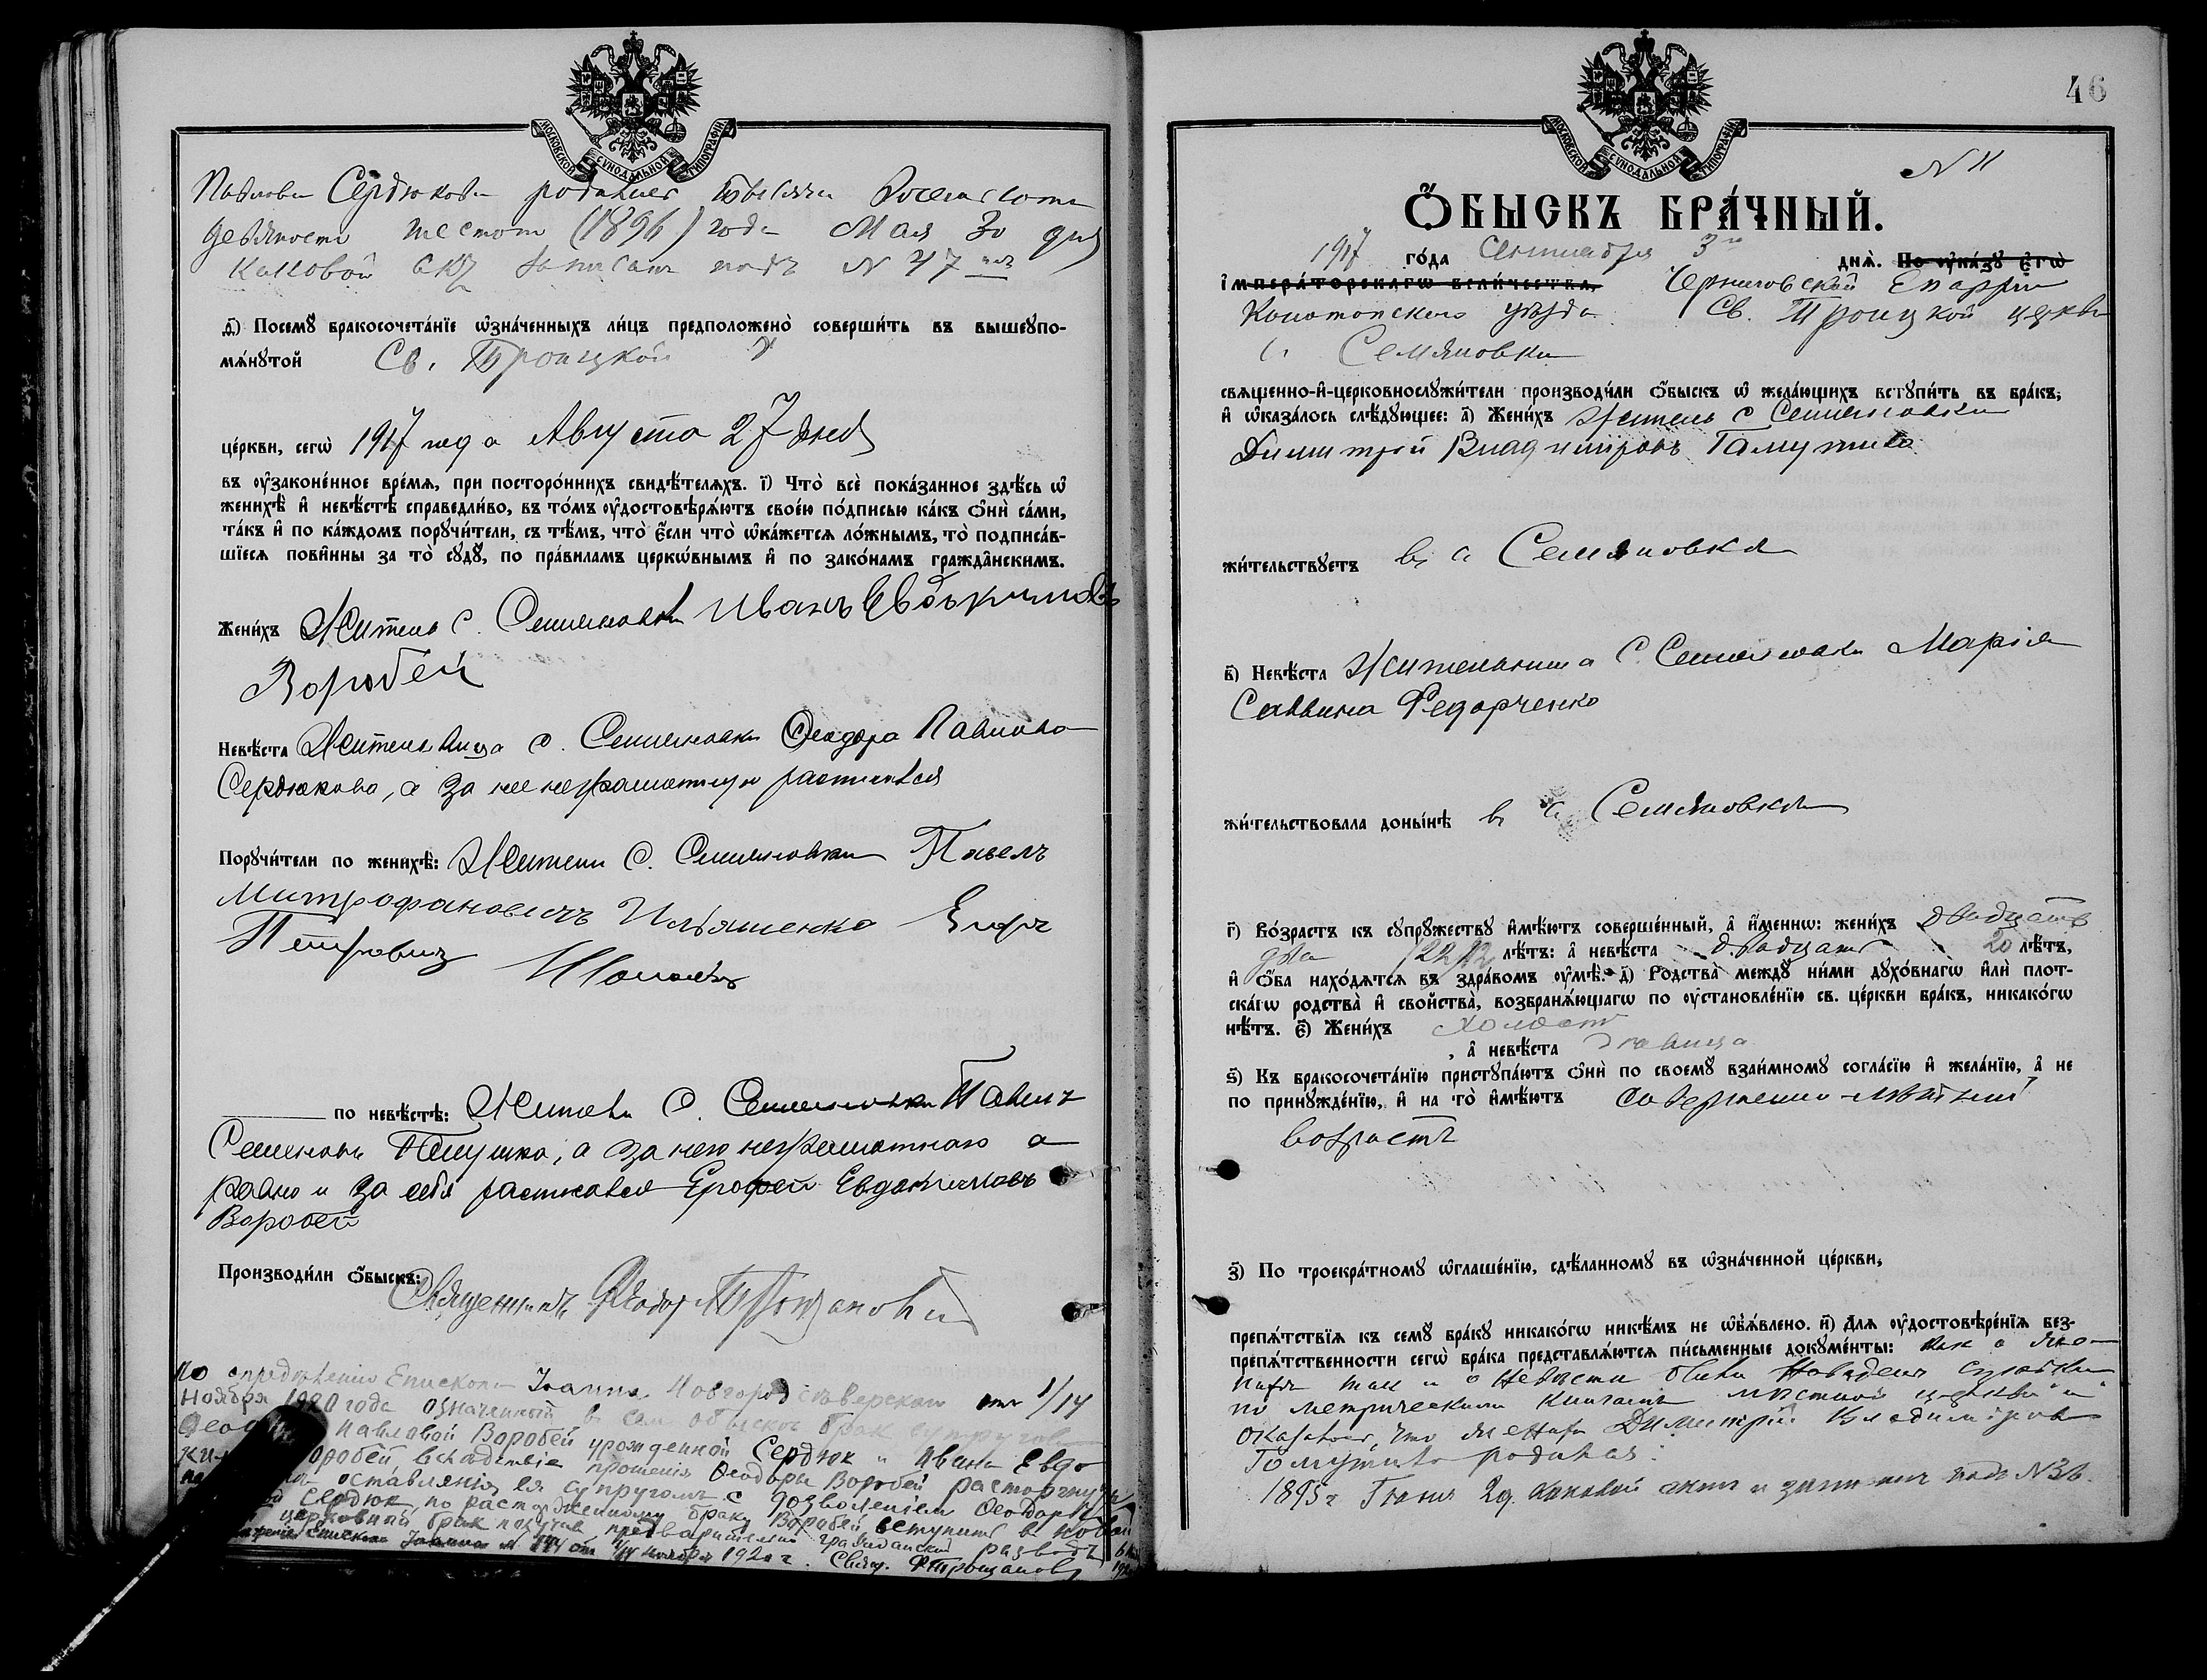 МОСКОВСКОЙ СѴНОДАЛЬНОЙ ТИПОГРАФІИ
Павлова Сердюкова родилась тысяча восемсотъ
девяносто шестом (1896) года Мая 30 дня
каковой актъ записанъ подъ N 47
д҃) Посемꙋ бракосочета́нїе ѡ҆зна́ченныхъ ли́цъ предположено̀ соверши́ть въ вышеꙋпо-
мѧ́нꙋтой Св. Троицкой
це́ркви, сегѡ̀ 1917 года Августа 27 дня
въ ᲂу҆зако́ненное вре́мѧ, при посторо́ннихъ свидѣ́телѧхъ. і҃) Что̀ всѐ пока́занное здѣ́сь ѡ҆
женихѣ̀ и҆ невѣ́стѣ справедли́во, въ то́мъ ᲂу҆достовѣрѧ́ютъ свое́ю по́дписью ка́къ ѻ҆нѝ са́ми,
та́къ и҆ по ка́ждомъ порꙋчи́тели, съ тѣ́мъ, что̀ є҆́сли что̀ ѡ҆ка́жетсѧ ло́жнымъ, то̀ подписа́в-
шїесѧ пови́нны за то̀ сꙋдꙋ̀, по пра́виламъ церко́внымъ и҆ по зако́намъ гражда́нскимъ.
Жени́хъ Житель с. Семеновки Иванъ Евдокимовъ
Воробей
Невѣ́ста Жительница с. Семеновки Ѳеодора Павлова
Сердюкова, а за нее неграмотную расписался
Порꙋчи́тели по женихѣ̀: Жители с. Семеновки Павелъ
Митрофановичъ Ильяшенко
Петровичъ
по невѣ́стѣ: Житель с. Семеновки Павелъ
Семеновъ а за него неграмотнаго а
равно и за себя расписался Ерофей Евдокимовъ
Воробей
Производи́ли ѻ҆́быскъ: Священникъ Ѳеодоръ Трощановъ
По опредѣленію Епископа Іоанна Новгородсѣверскаго отъ 1/14
Ноября 1920 года означенный в сем обыскѣ брак супруговъ
Павловой Воробей урожденной Сердюк и Ивана Евдо
Воробей, вслѣдствіе прошенія Ѳеодоры Воробей расторгнутъ
оставленія ея супругомъ с дозволеніем Ѳеодорѣ
Сердюк по расторженному браку Воробей вступить в новый
церковный брак получив предварительно гражданскій развод
Епископа Іоанна от 1/14 ноября 1920 г. Свящ. Ѳ Трощановъ
46
МОСКОВСКОЙ СѴНОДАЛЬНОЙ ТИПОГРАФІИ
N 11
Ѻ҆́БЫСКЪ БРА́ЧНЫЙ.
1917 го́да Сентября 3 днѧ̀. По ᲂу҆ка́зꙋ є҆гѡ̀
і҆мпера́торскагѡ вели́чества, Черниговской Епархіи
Конотопского уѣзда Св. Троицкой церкви
с. Семяновки
свѧщенно-и҆-церковнослꙋжи́тели производи́ли ѻ҆́быскъ ѡ҆ жела́ющихъ встꙋпи́ть въ бра́къ,
и҆ ѡ҆каза́лось слѣ́дꙋющее: а҃) Жени́хъ Житель с Семеновки
Димитрій Владимировъ Гамутило
жи́тельствꙋетъ въ с Семяновка
в҃) Невѣ́ста Жительница с. Семеновки Марія
Саввина Федорченко
жи́тельствовала доны́нѣ въ с Семяновка
г҃) Во́зрастъ къ сꙋпрꙋ́жествꙋ и҆мѣ́ютъ соверше́нный, а҆ и҆́меннѡ: жени́хъ двадцать
два (22) лѣ́тъ: а҆ невѣ́ста двадцать 20 лѣ́тъ,
и҆ ѻ҆́ба нахо́дѧтсѧ въ здра́вомъ ᲂу҆мѣ̀. д҃) Родства̀ междꙋ̀ ни́ми дꙋхо́внагѡ и҆лѝ плот-
ска́гѡ родства̀ и҆ свойства̀, возбранѧ́ющагѡ по ᲂу҆становле́нїю св. це́ркви бра́къ, никако́гѡ
нѣ́тъ. є҃) Жени́хъ холост
, а҆ невѣ́ста дѣвица
ѕ҃) Къ бракосочета́нїю пристꙋпа́ютъ ѻ҆нѝ по своемꙋ̀ взаи́мномꙋ согла́сїю и҆ жела́нїю, а҆ не
по принꙋжде́нїю, и҆ на то̀ и҆мѣ́ютъ совершенно-лѣтній
возрастъ
з҃) По троекра́тномꙋ ѡ҆глаше́нїю, сдѣ́ланномꙋ въ ѡ҆зна́ченной це́ркви,
препѧ́тствїѧ къ семꙋ̀ бра́кꙋ никако́гѡ никѣ́мъ не ѡ҆б̾ѧ́влено. и҃) Длѧ ᲂу҆достовѣре́нїѧ без-
препѧ́тственности сегѡ̀ бра́ка представлѧ́ютсѧ пи́сьменные докꙋме́нты: как о же-
нихѣ так и о невѣсти были наведены справки
по метрическим книгамъ мѣстной церкви и
оказалось, что жених Димитрій Владиміровъ
Гомутило родился
1895 г 29. каковой актъ и записанъ подъ N 36.